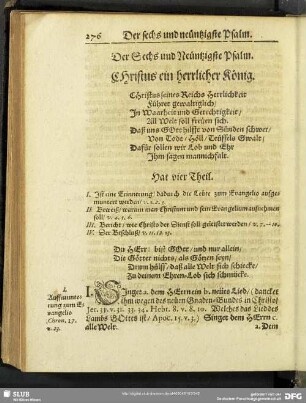 276 Der sechs und neüntzigste Psalm.
Der Sechs und Neüntzigste Psalm.
CHristus ein herrlicher König.
CHristus seines Reichs Herrlichkeit
Führet gewaltiglich;
In Warheit und Gerechtigkeit/
All Welt soll freüen sich.
Daß uns GOtt hilfft von Sünden schwer/
Von Tode/ Höll/ Teüffels Gwalt;
Dafür sollen wir Lob und Ehr
Ihm sagen mannchfalt.
Hat vier Theil.
I. Ist eine Erinnerung/ dadurch die Lehre zum Evangelio aufge-
muntert werden/ v. 1. 2. 3.
II Beweiß/ warum man Christum und sein Evangelium aufnehmen
soll/ v. 4. 5. 6.
III. Bericht/ wie Christo der Dienst soll geleistet werden/ v. 7. - 10.
IV. Der Beschluß/ v. 11. 12. 13.
Du HErr/ bist GOtt/ und nur allein;
Die Götter nichts/ als Götzen seyn;
Drum hilff/ daß alle Welt sich schicke/
Zu deinem Ehren-Lob sich schmücke.
I.
Auffmunte-
rung zum E-
vangelio
1. Chron. 17.
v. 23.
I. SInget a. dem HErrn ein b. neües Lied/ (dancket
ihm wegen des neuen Gnaden-Bundes in Christo/
Jer. 31. v. 31. 33. 34. Hebr. 8. v. 8. 10. Welches das Lied des
Lambs GOttes ist/ Apoc. 15. v. 3.) Singet dem HErrn c.
alle Welt.
2. Dem
SLUB
DFG